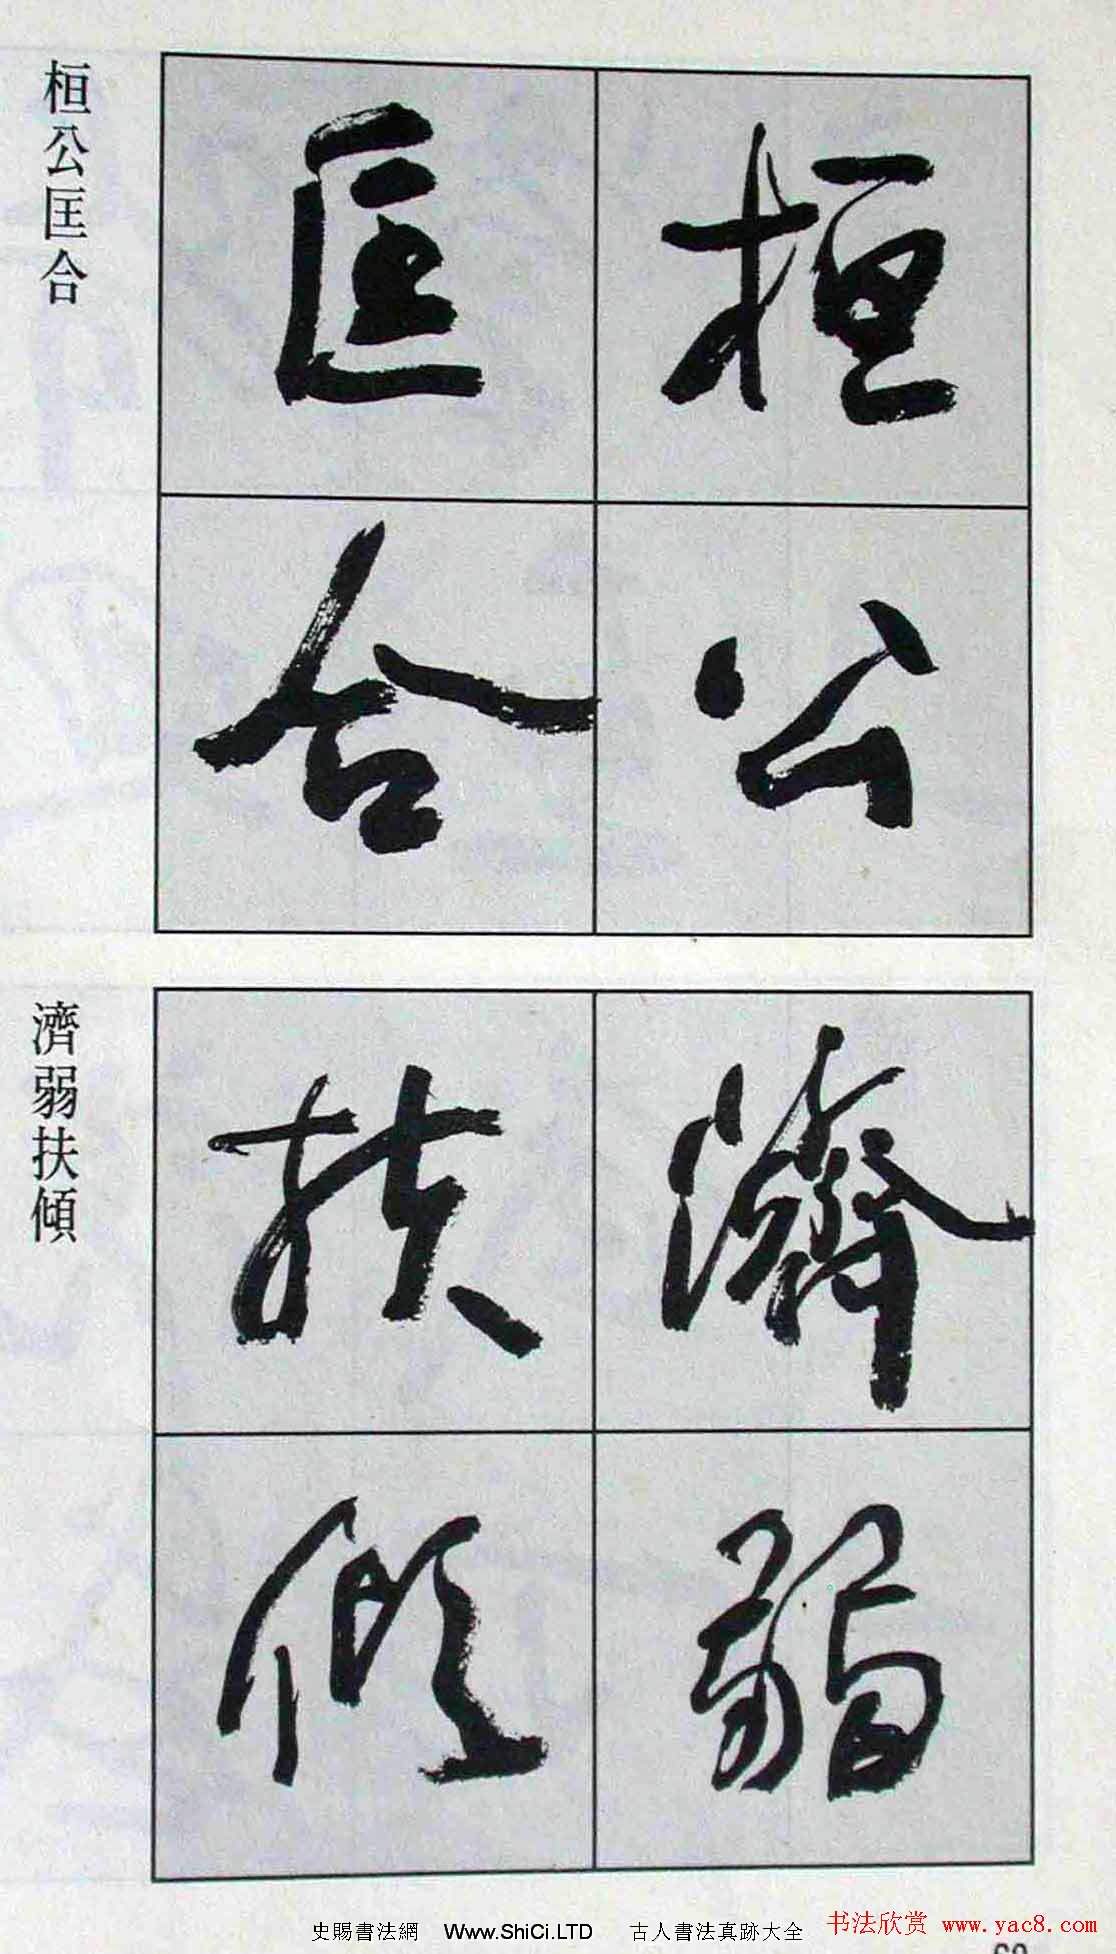 桓公
匡合
桓公匡合
濟弱
扶傾
濟弱扶傾
史賜書法網 Www.ShiCi.LTD 古人書法真跡大全
书法欣赏 www.yac8.com